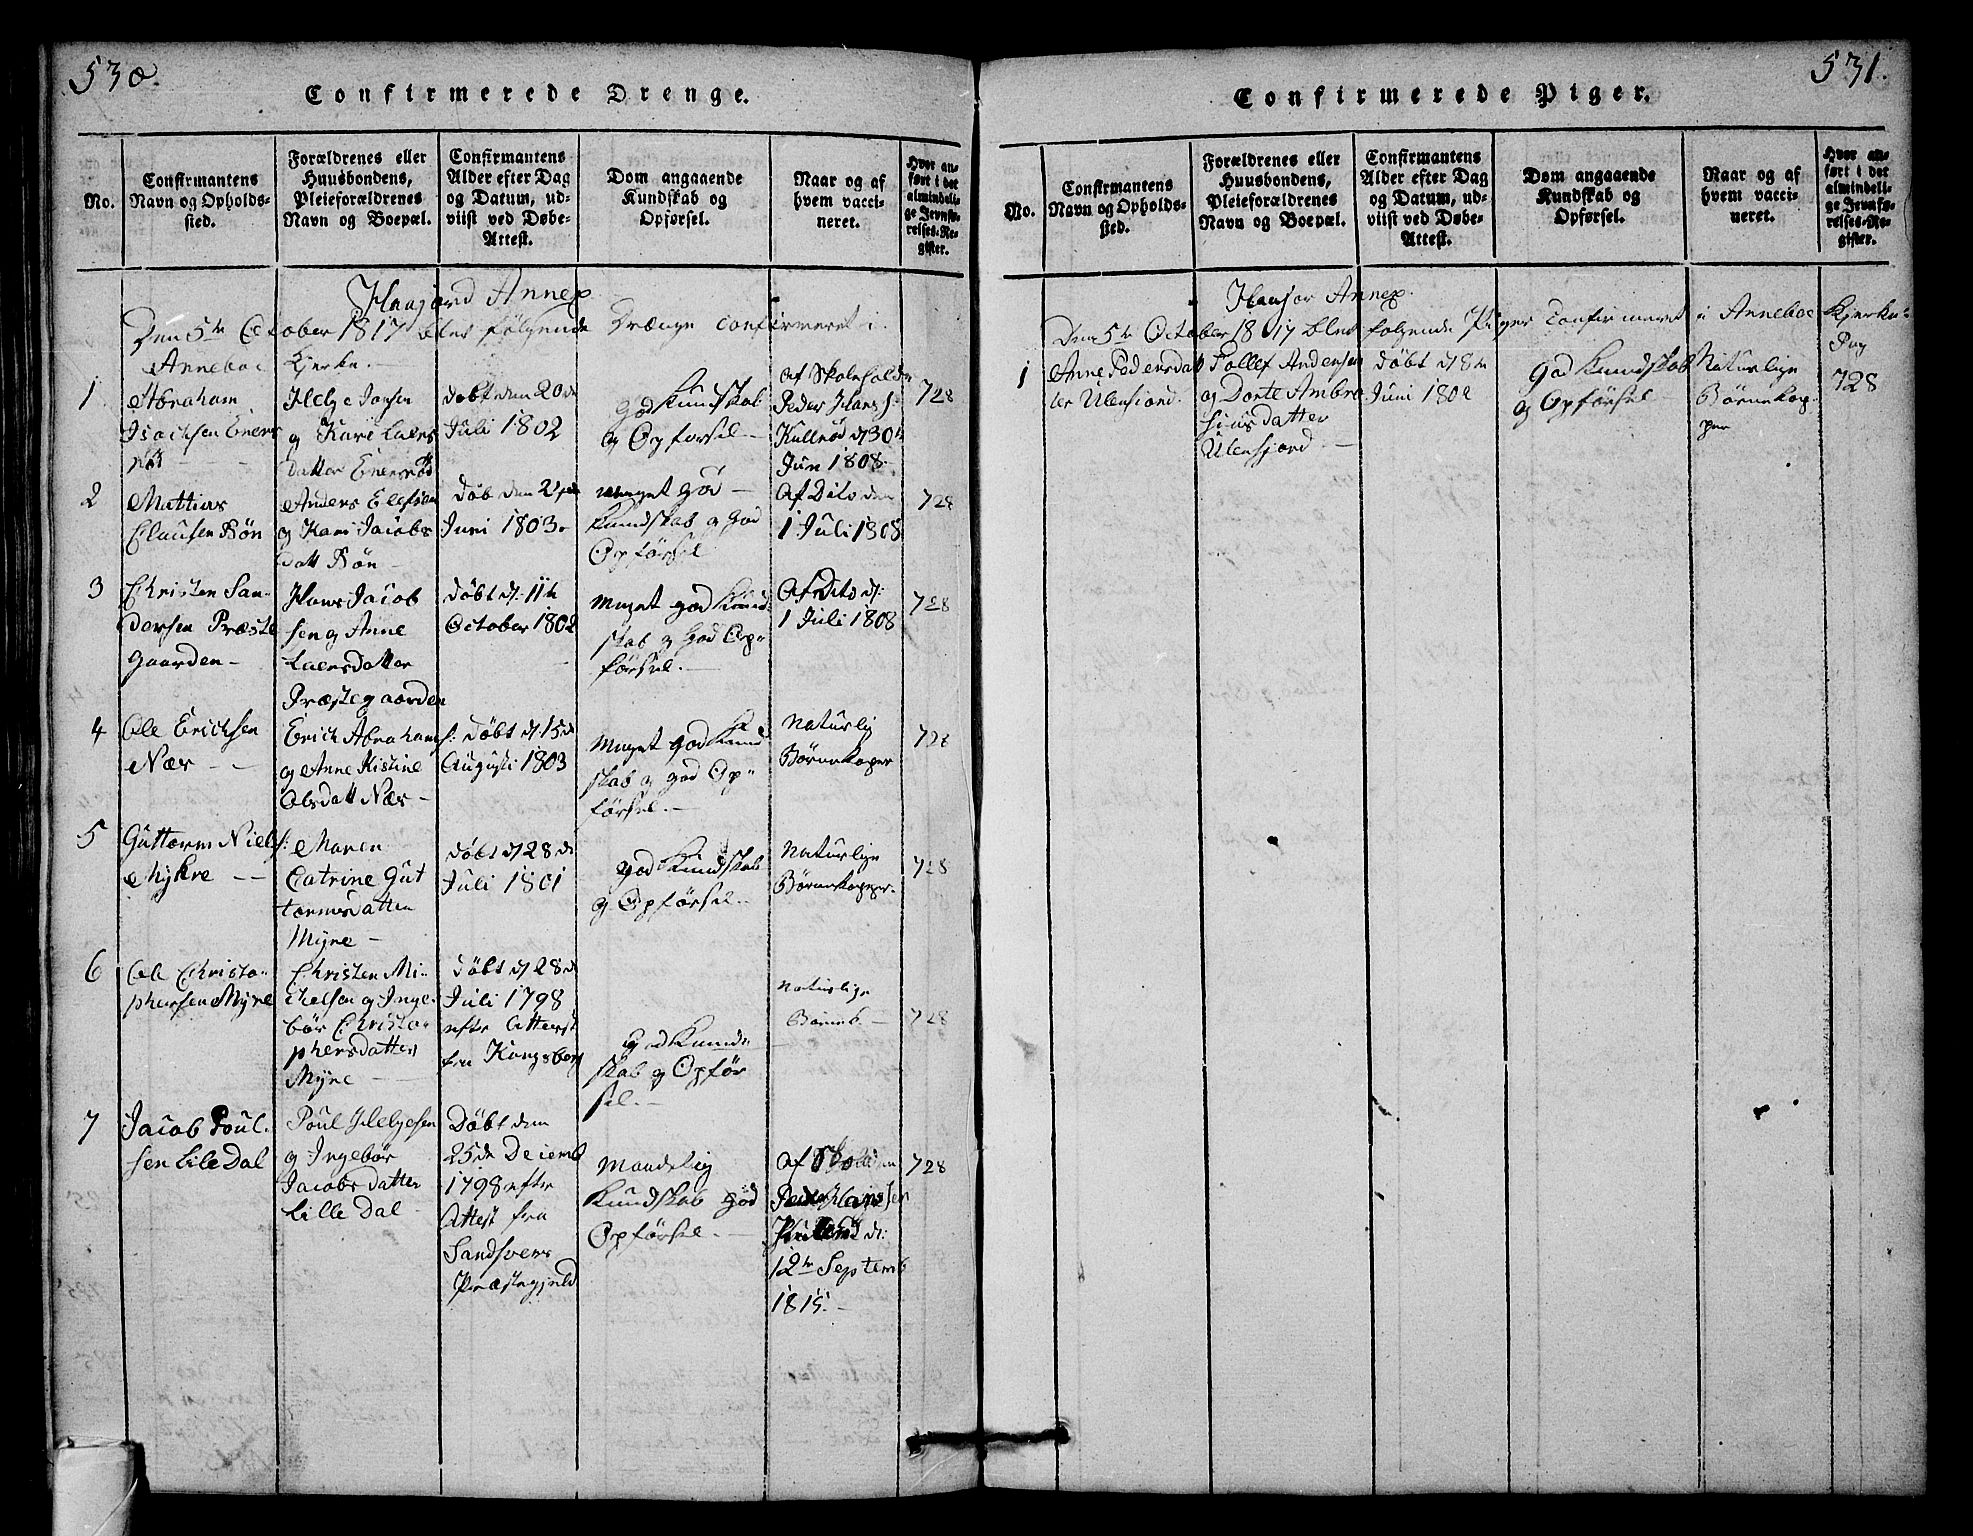 530.
Confirmerede Drenge.
No.
Confirmantens
Navn og Opholds-
sted.
Forældrenes eller
Huusbondens,
Pleieforældrenes
Navn og Boepæl.
Confirmantens
Alder efter Dag
og Datum, ud-
viist ved Døbe-
Attest.
Dom angaaende
Kundskab og
Opførsel.
Naar og af
hvem vacci-
neret.
Hvor an-
ført i det
almindeli-
ge Jevnfø-
relses-Re-
gister.
Annex
Den 5te October 1817 blev følgende Drænge confirmeret i
Anneboe Kjerke.
1
Abraham
Isachsen Eners
Helge Jansen
og Kari Laers
datter Enersrød
døbt den 20de
Juli 1802
God Kundskab
og Opførsel
Af Skoleholder
Peder Hans s:
Kullerød d 30te
Jun 1808.
728
2
Mattias
Clausen Bøn
Anders Elefsen
og Kari Jacobs
datt Bøn
døb den 2den
Juni 1803
meget God
Kundskab og God
Opførsel
Af Dito den
1 Juli 1808
728
3
Christen San-
dersen Præste
gaarden
Hans Jacob
sen og Anne
Laersdatter
Præstegaarden
døbt d: 11te
October 1802
meget god Kund-
skab og God Op-
førsel.
Af Dito d:
1 Juli 1808
728
4
Ole Erichsen
Næs
Erich Abrahams s:
og Anne Kistine
Olsdatt Næs
døbt d 15de
Augusti 1803
meget god Kund
skab og god Op-
førsel.
Naturlig
Børnekoper
728
5
Guttorm Niels s:
Myhre
Maren
Catrine Gut
tormsdatter
Myre
døbt d 28de
Juli 1801
god Kundskab
og Opførsel.
Naturlige
Børnekopper.
728
6
Ole Christo-
phersen Myre
Christen Mi-
chelsen og Inge-
bør Christo-
phersdatter
Myre
døbt d 28de
Juli 1798
efter Attest
fra Kongsberg
God Kund-
skab og Opfør
sel.
Naturlige
Børnek.
728
7
Jacob Poul-
sen Lile Dal
Poul Helgesen
og Ingebør
Jacobsdatter
Lille Dal
Døbt den
25de Decemb
1798 efter
Attest fra
Sandsvers
Præstegjeld
Maadelig
Kundskab God
Opførsel.
Af
Peder Hanssen
d:
12te Septemb
1815.
728
531.
Confirmerede Piger.
No.
Confirmantens
Navn og Opholds-
sted.
Forældrenes eller
Huusbondens,
Pleieforældrenes
Navn og Boepæl.
Confirmantens
Alder efter Dag
og Datum, ud-
viist ved Døbe-
Attest.
Dom angaaende
Kundskab og
Opførsel.
Naar og af
hvem vacci-
neret.
Hvor an-
ført i det
almindeli-
ge Jevnfø-
relses-Re-
gister.
Annex.
Den 5te October 1817 blev følgende Piger Confirmeret i Anneboe Kjerke
Pag
1
Anne
ter Ulensiord.
Tollef Andersen
og Dorte Ambro
siusdatter
Ulensjord.
døbt d 8de
Juni 1802
God Kundskab
og Opførsel
Naturlige
Børnekop-
per
728